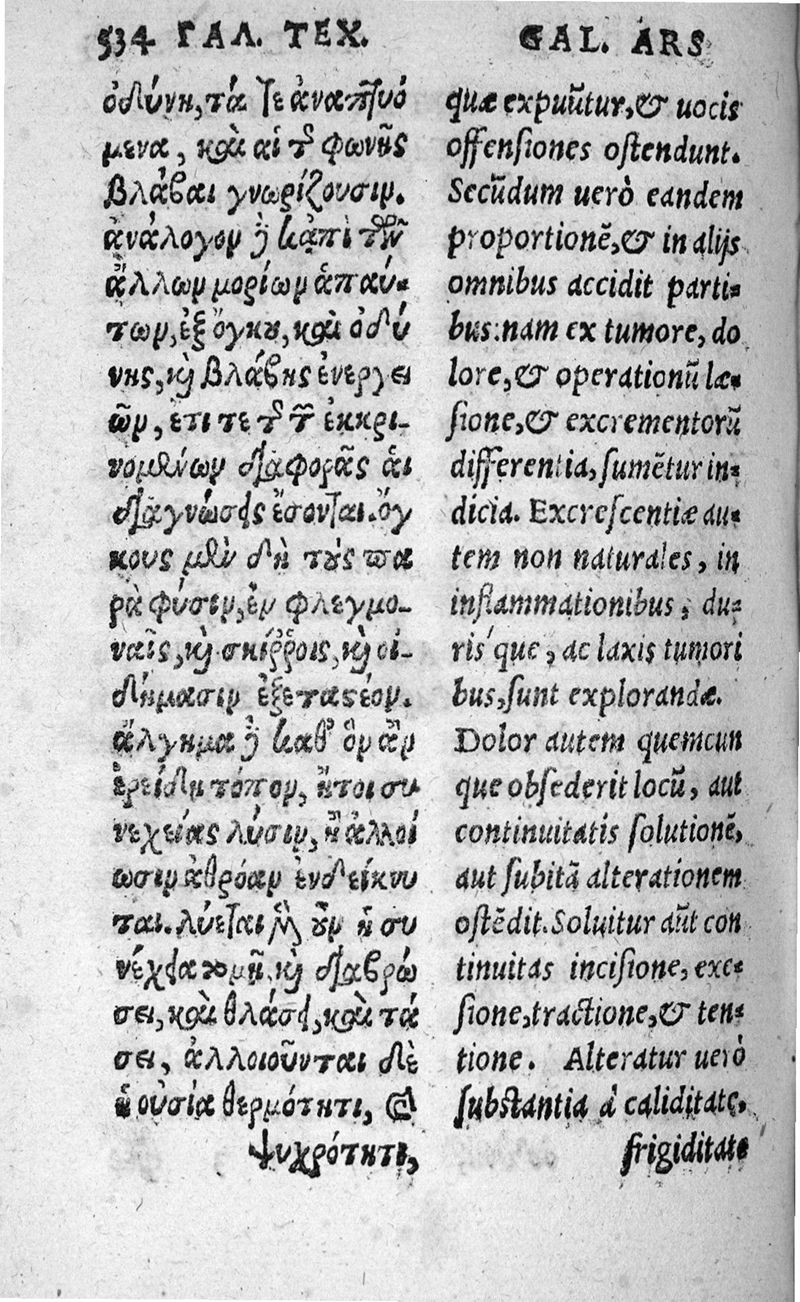 534 ΓΑΛ. ΤΕΧ.
ὀδύνη, τά τε ἀναπτυό
μενα, καὶ αἱ τῆς φωνῆς
βλάβαι γνωρίζουσιν.
ἀνάλογον ἢ κἀπὶ τῶν
ἄλλων μορίων ἁπάν-
των, ἐξ ὄγκου, καὶ ὀδύ
νης, καὶ βλάβης ἐνεργει
ῶν, ἔτι τε τῆς τῶν ἐκκρι-
νομένων διαφορᾶς αἱ
διαγνώσεις ἔσονται. ὄγ
κους μὲν δὴ τοὺς πα
ρὰ φύσιν, ἐν φλεγμο-
ναῖς, καὶ σκίῤῥοις, καὶ οἰ-
δήμασιν ἐξεταστέον.
ἄλγημα δὲ καθ' ὃν ἂν
ἐρείδῃ τόπον, ἤτοι συ
νεχείας λύσιν, ἢ ἀλλοί
ωσιν ἀθρόαν ἐνδείκνυ
ται. λύεται μὲν οὖν ἡ συ
νέχεια τομῇ, καὶ διαβρώ
σει, καὶ θλάσει, καὶ τά
σει, ἀλλοιοῦνται δὲ
ἡ οὐσία θερμότητι, καὶ
ψυχρότητι,
GAL. ARS
quæ expuũtur, & uocis
offensiones ostendunt.
Secũdum uerò eandem
proportionẽ, & in alijs
omnibus accidit parti-
bus: nam ex tumore, do
lore, & operationũ læ-
sione, & excrementorũ
differentia, sumẽtur in-
dicia. Excrescentiæ au-
tem non naturales, in
inflammationibus, du-
ris'que, ac laxis tumori
bus, sunt explorandæ.
Dolor autem quemcun
que obsederit locũ, aut
continuitatis solutionẽ,
aut subitã alterationem
ostẽdit. Soluitur aũt con
tinuitas incisione, exe-
sione, tractione, & ten-
tione. Alteratur uerò
substantia à caliditate,
frigiditate